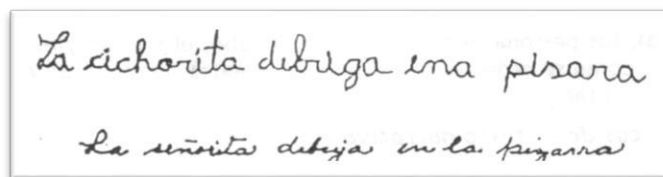 La cichorita debriga ena pisara
La señorita debuja en la pizarra